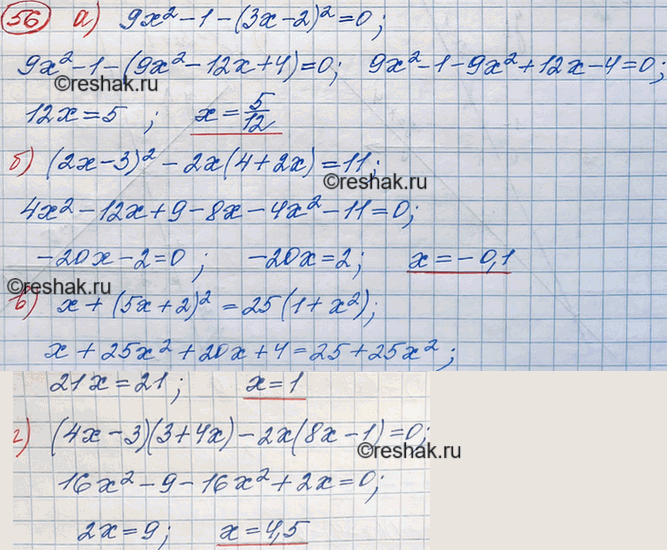 56 а) 9x² - 1 - (3x - 2)² = 0;
9x² - 1 - (9x² - 12x + 4) = 0; 9x² - 1 - 9x² + 12x - 4 = 0;
©reshak.ru
12x = 5 ; x = 5/12
б) (2x - 3)² - 2x(4 + 2x) = 11;
©reshak.ru
4x² - 12x + 9 - 8x - 4x² - 11 = 0;
-20x - 2 = 0 ; -20x = 2; x = -0,1
©reshak.ru
в) x + (5x + 2)² = 25(1 + x²);
x + 25x² + 20x + 4 = 25 + 25x²;
21x = 21; x = 1
г) (4x - 3)(3 + 4x) - 2x(8x - 1) = 0;
©reshak.ru
16x² - 9 - 16x² + 2x = 0;
2x = 9; x = 4,5